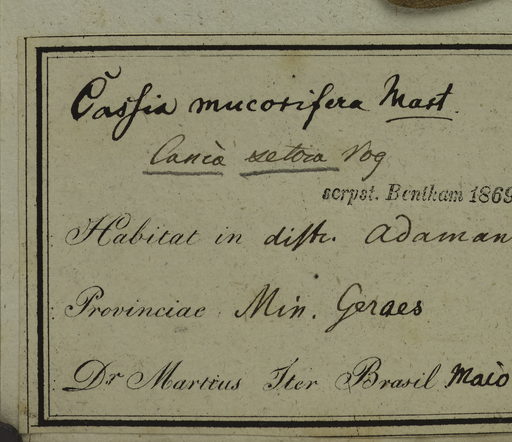 Cassia mucorifera Mart.
Cassia setosa Vog
scrpst. Bentham 1869
Habitat in distr. Adaman
Provinciae Min. Geraes
Dr Martius Iter Brasil Maio